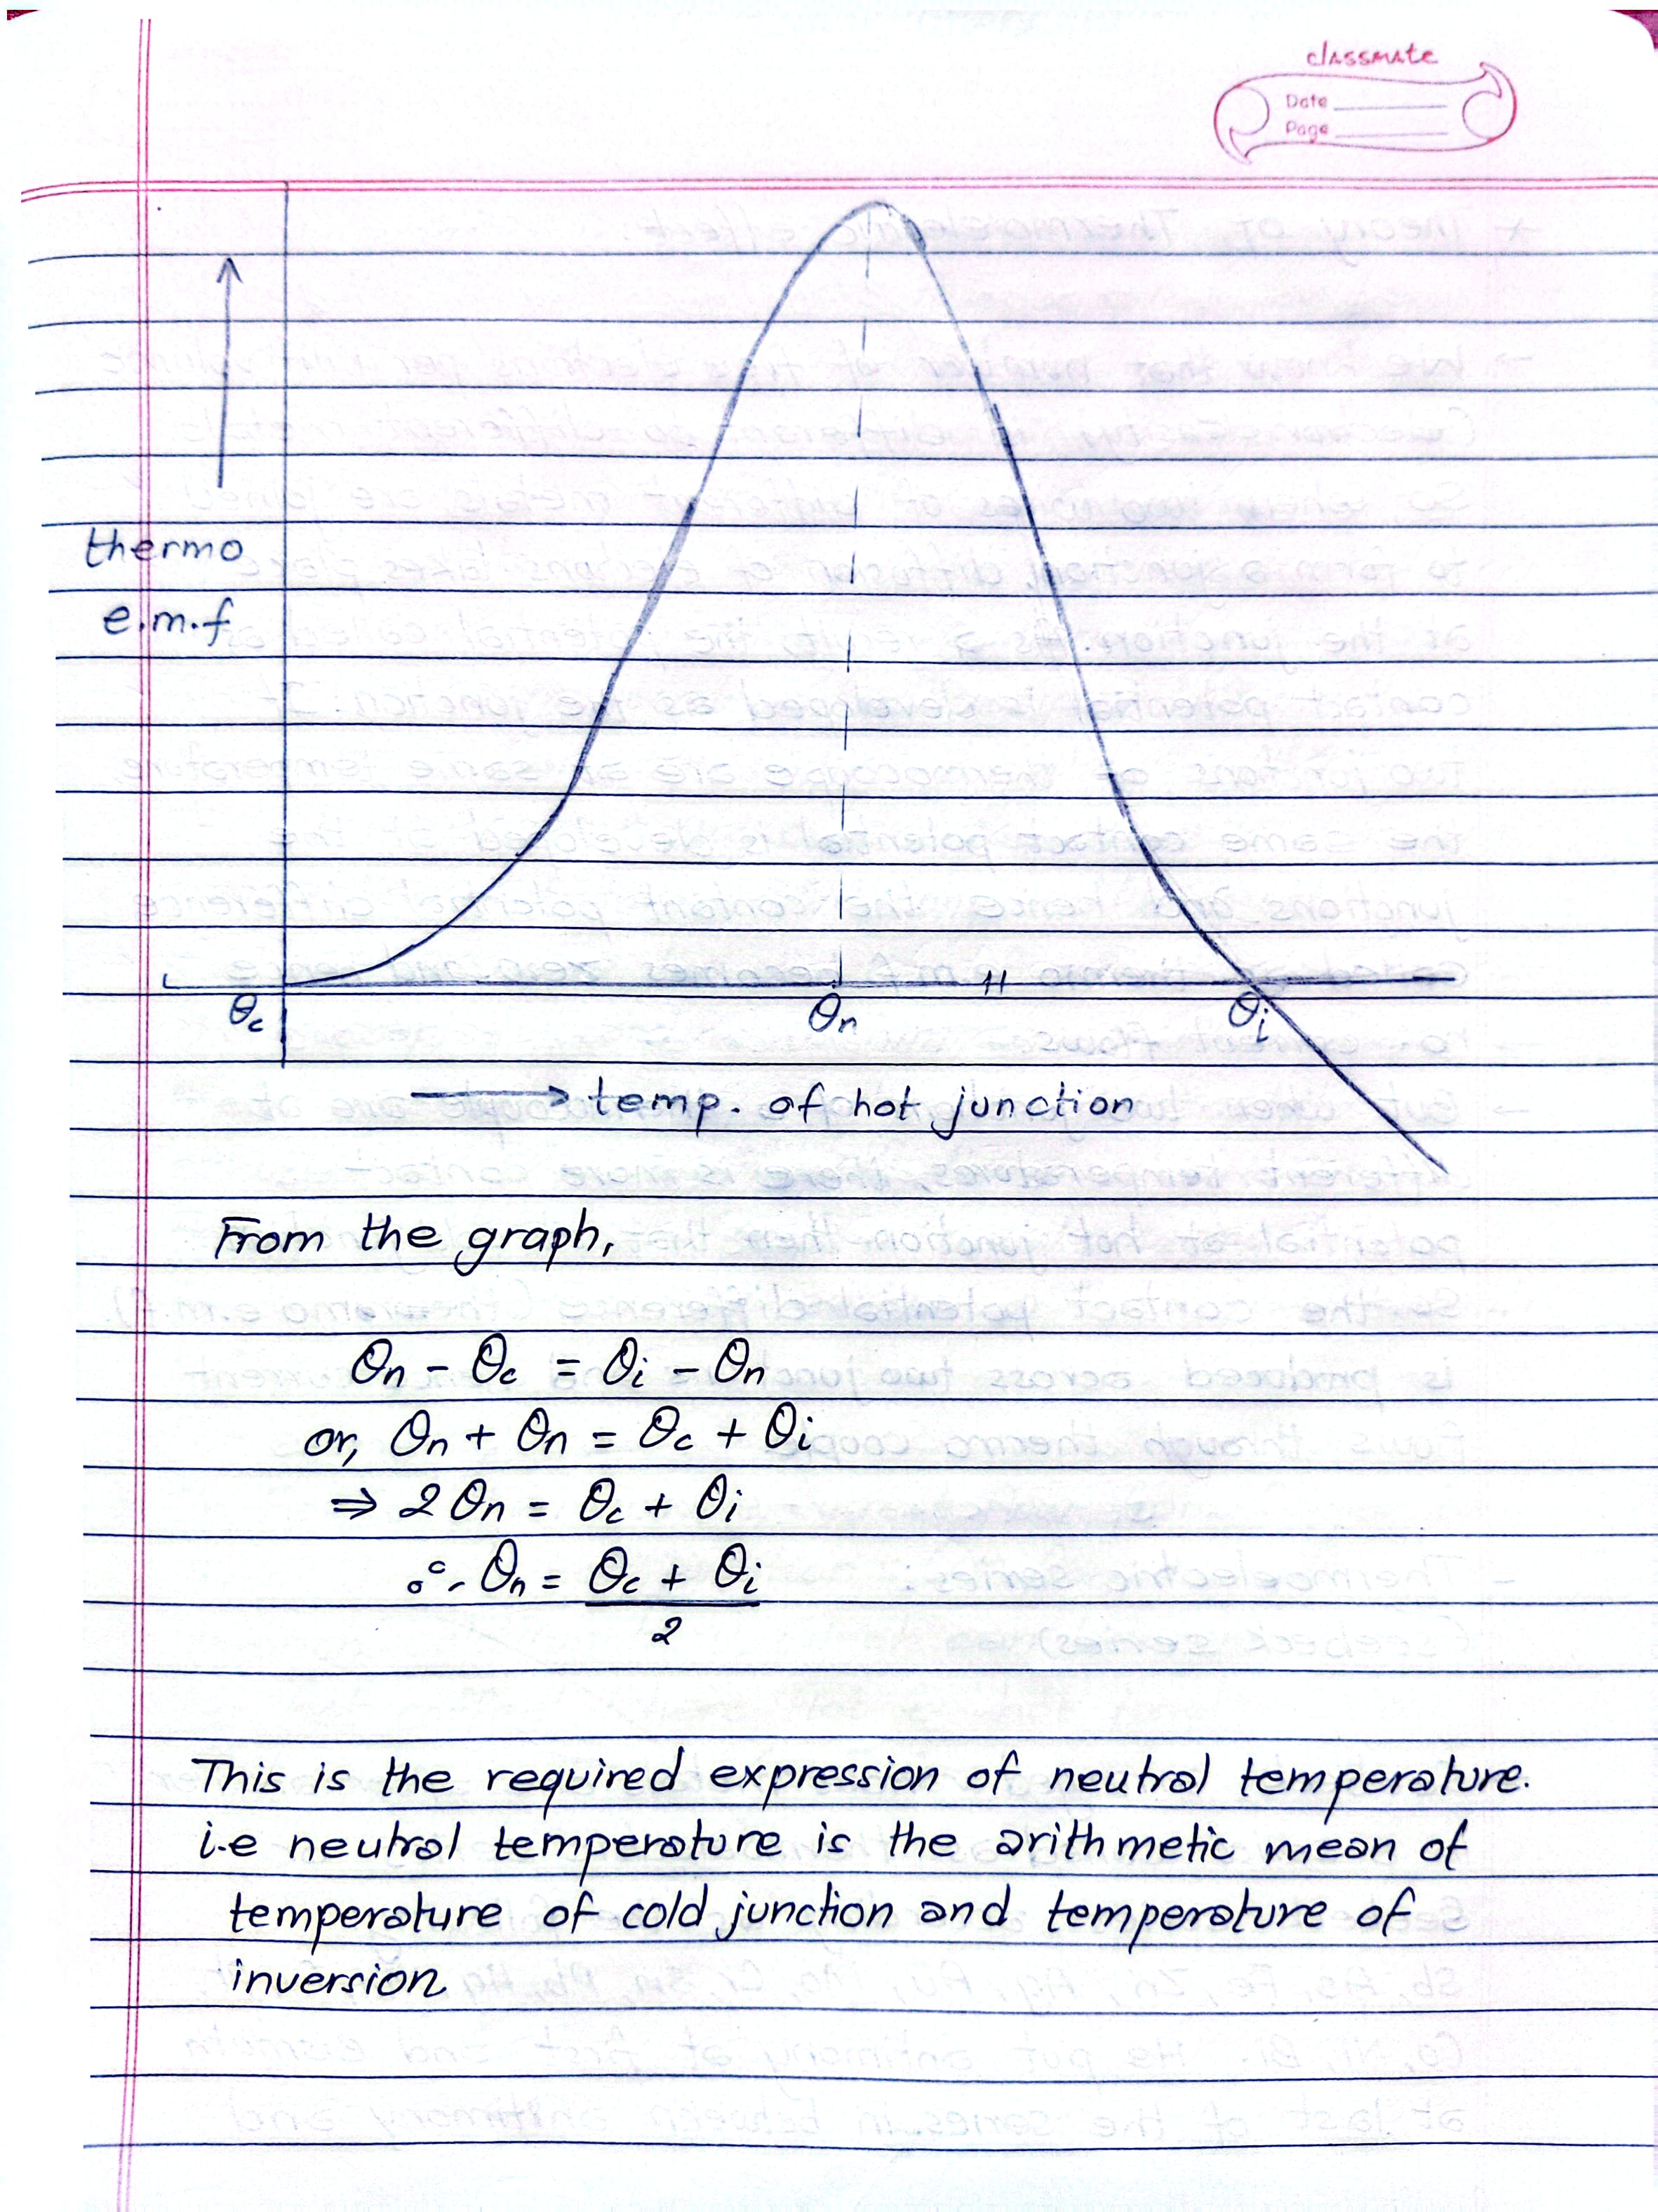 classmate
Date
Page
thermo
e.m.f
θc
θn
θi
→ temp. of hot junction
From the graph,
θn - θc = θi - θn
or, θn + θn = θc + θi
⇒ 2θn = θc + θi
∴ θn = θc + θi
2
This is the required expression of neutral temperature.
i.e neutral temperature is the arithmetic mean of
temperature of cold junction and temperature of
inversion